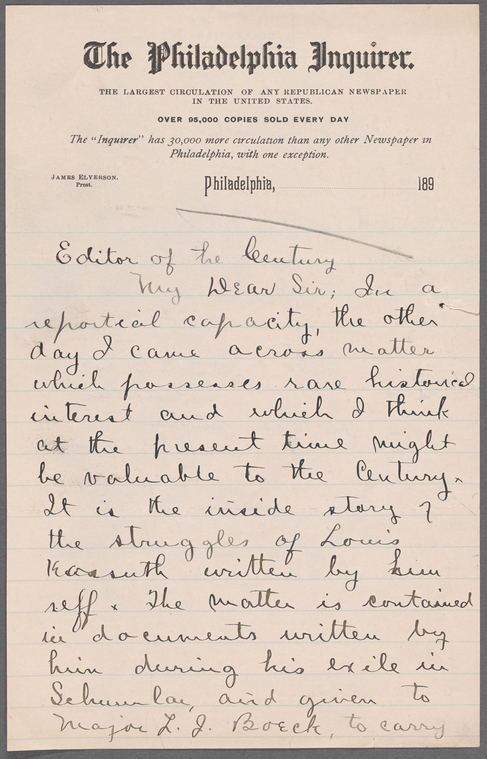 The Philadelphia Inquirer.
THE LARGEST CIRCULATION OF ANY REPUBLICAN NEWSPAPER
IN THE UNITED STATES.
OVER 95,000 COPIES SOLD EVERY DAY
The "Inquirer" has 30,000 more circulation than any other Newspaper in
Philadelphia, with one exception.
JAMES ELVERSON.
Prest.
Philadelphia, 189
Editor of the Century
My Dear Sir; In a
reportial capacity, the other
day I came across matter
which possesses rare historical
interest and which I think
at the present time might
be valuable to the Century.
It is the inside story of
the struggles of Louis
Kossuth written by him
self. The matter is contained
in documents written by
him during his exile in
Schumla, and given to
Major L. J. Boeck, to carry